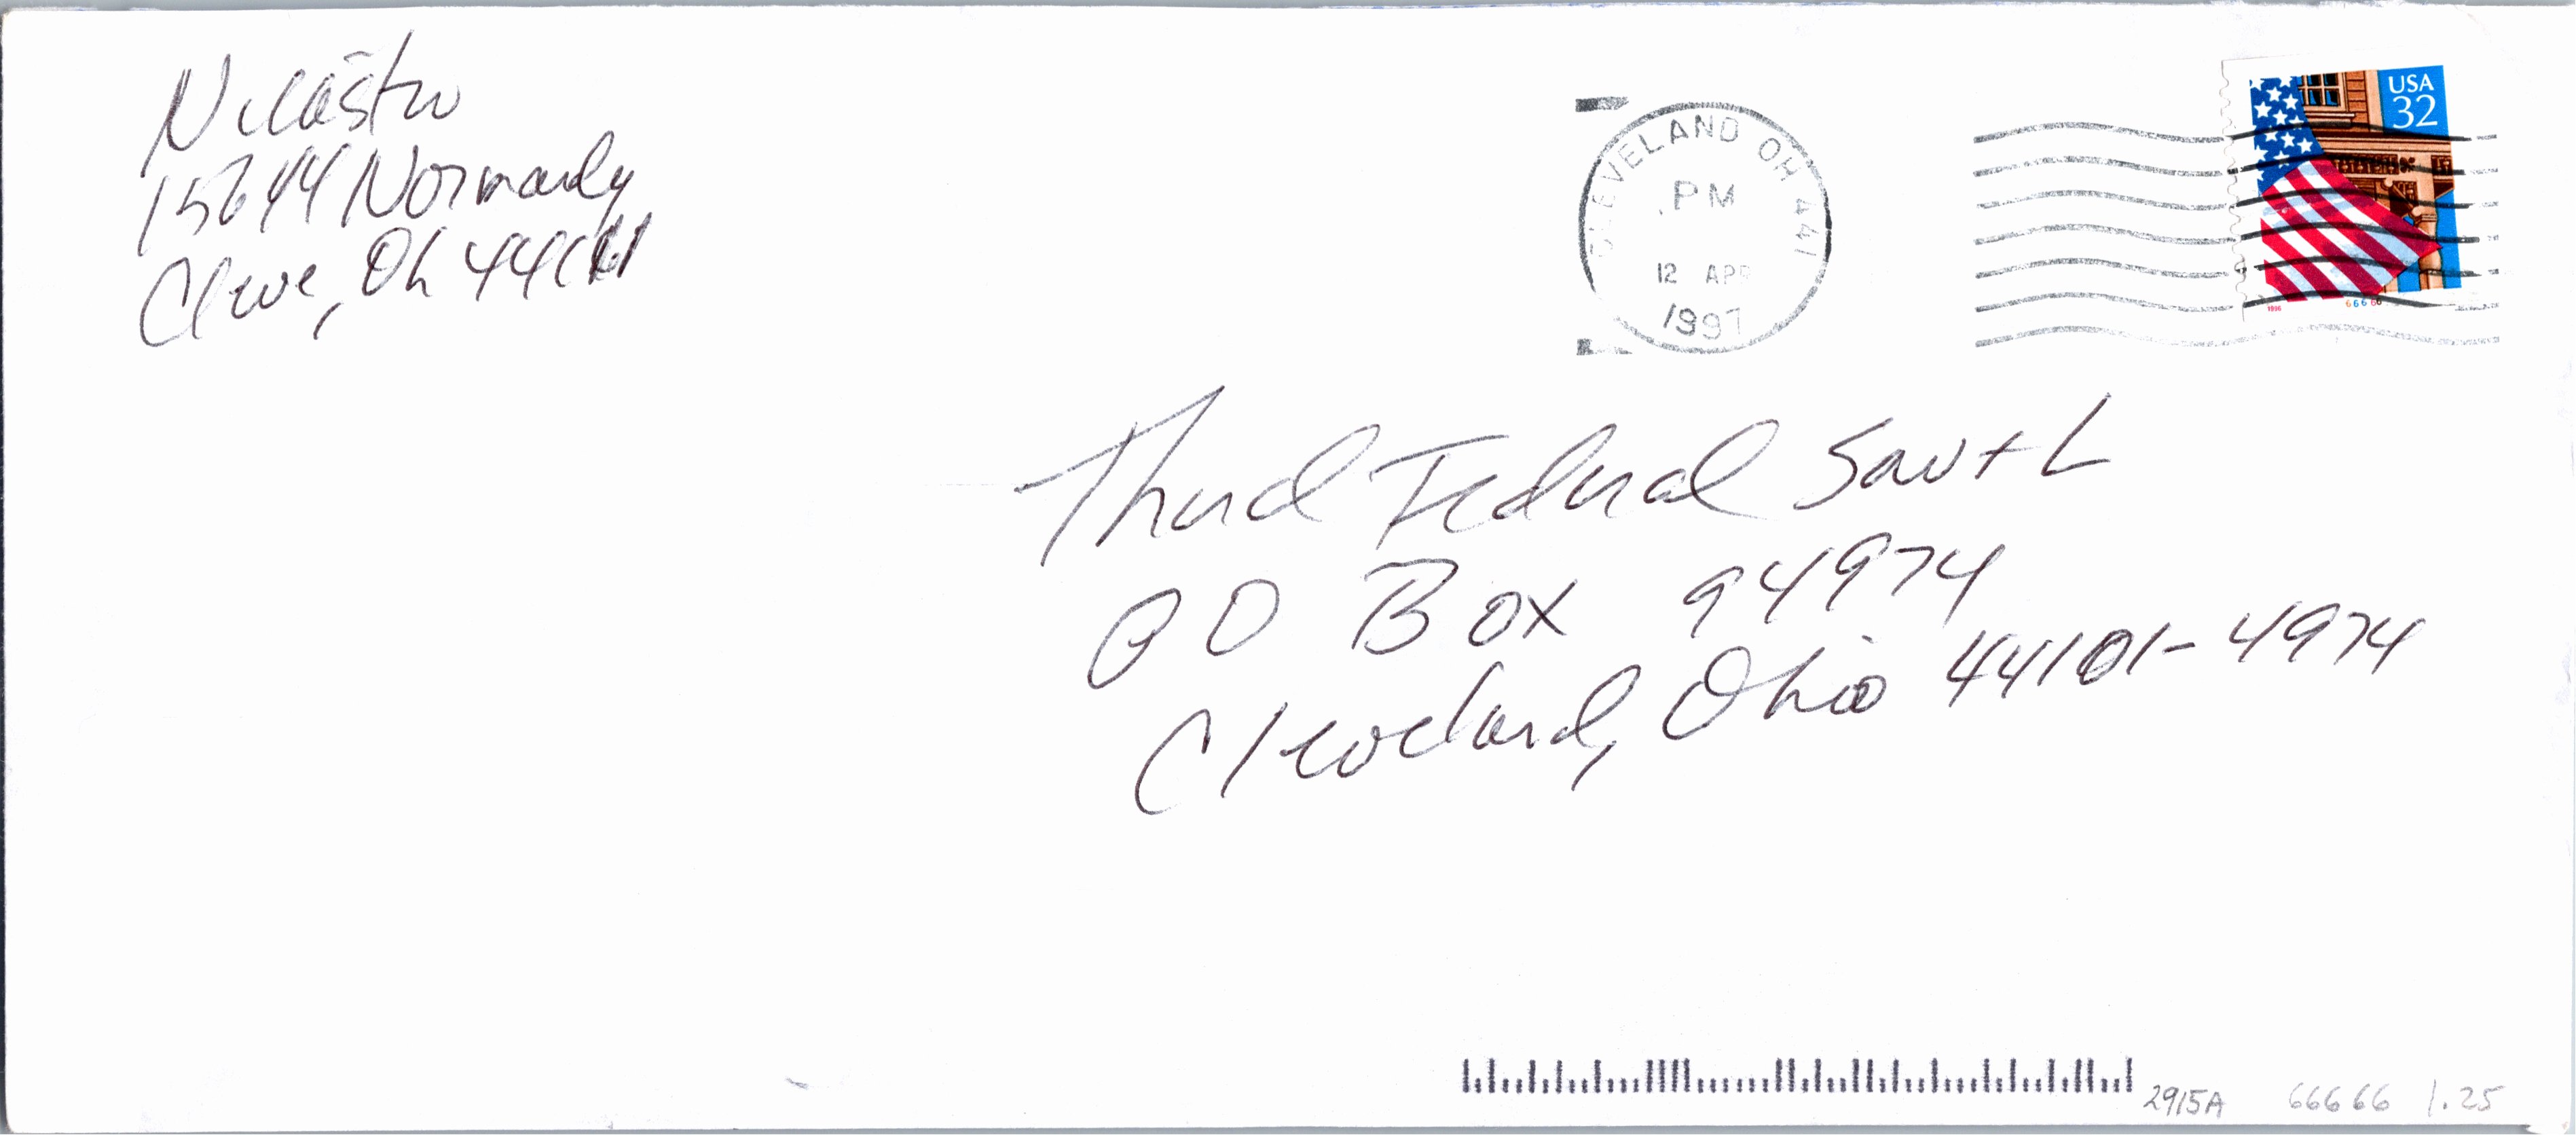 Nicastro
15644 Normandy
Cleve, Oh 44111
CLEVELAND OH 441
PM
12 APR
1997
USA
32
1996
66666
Third Federal Sav + L
P O Box 94974
Cleveland, Ohio 44101-4974
2915A 66666 1.25